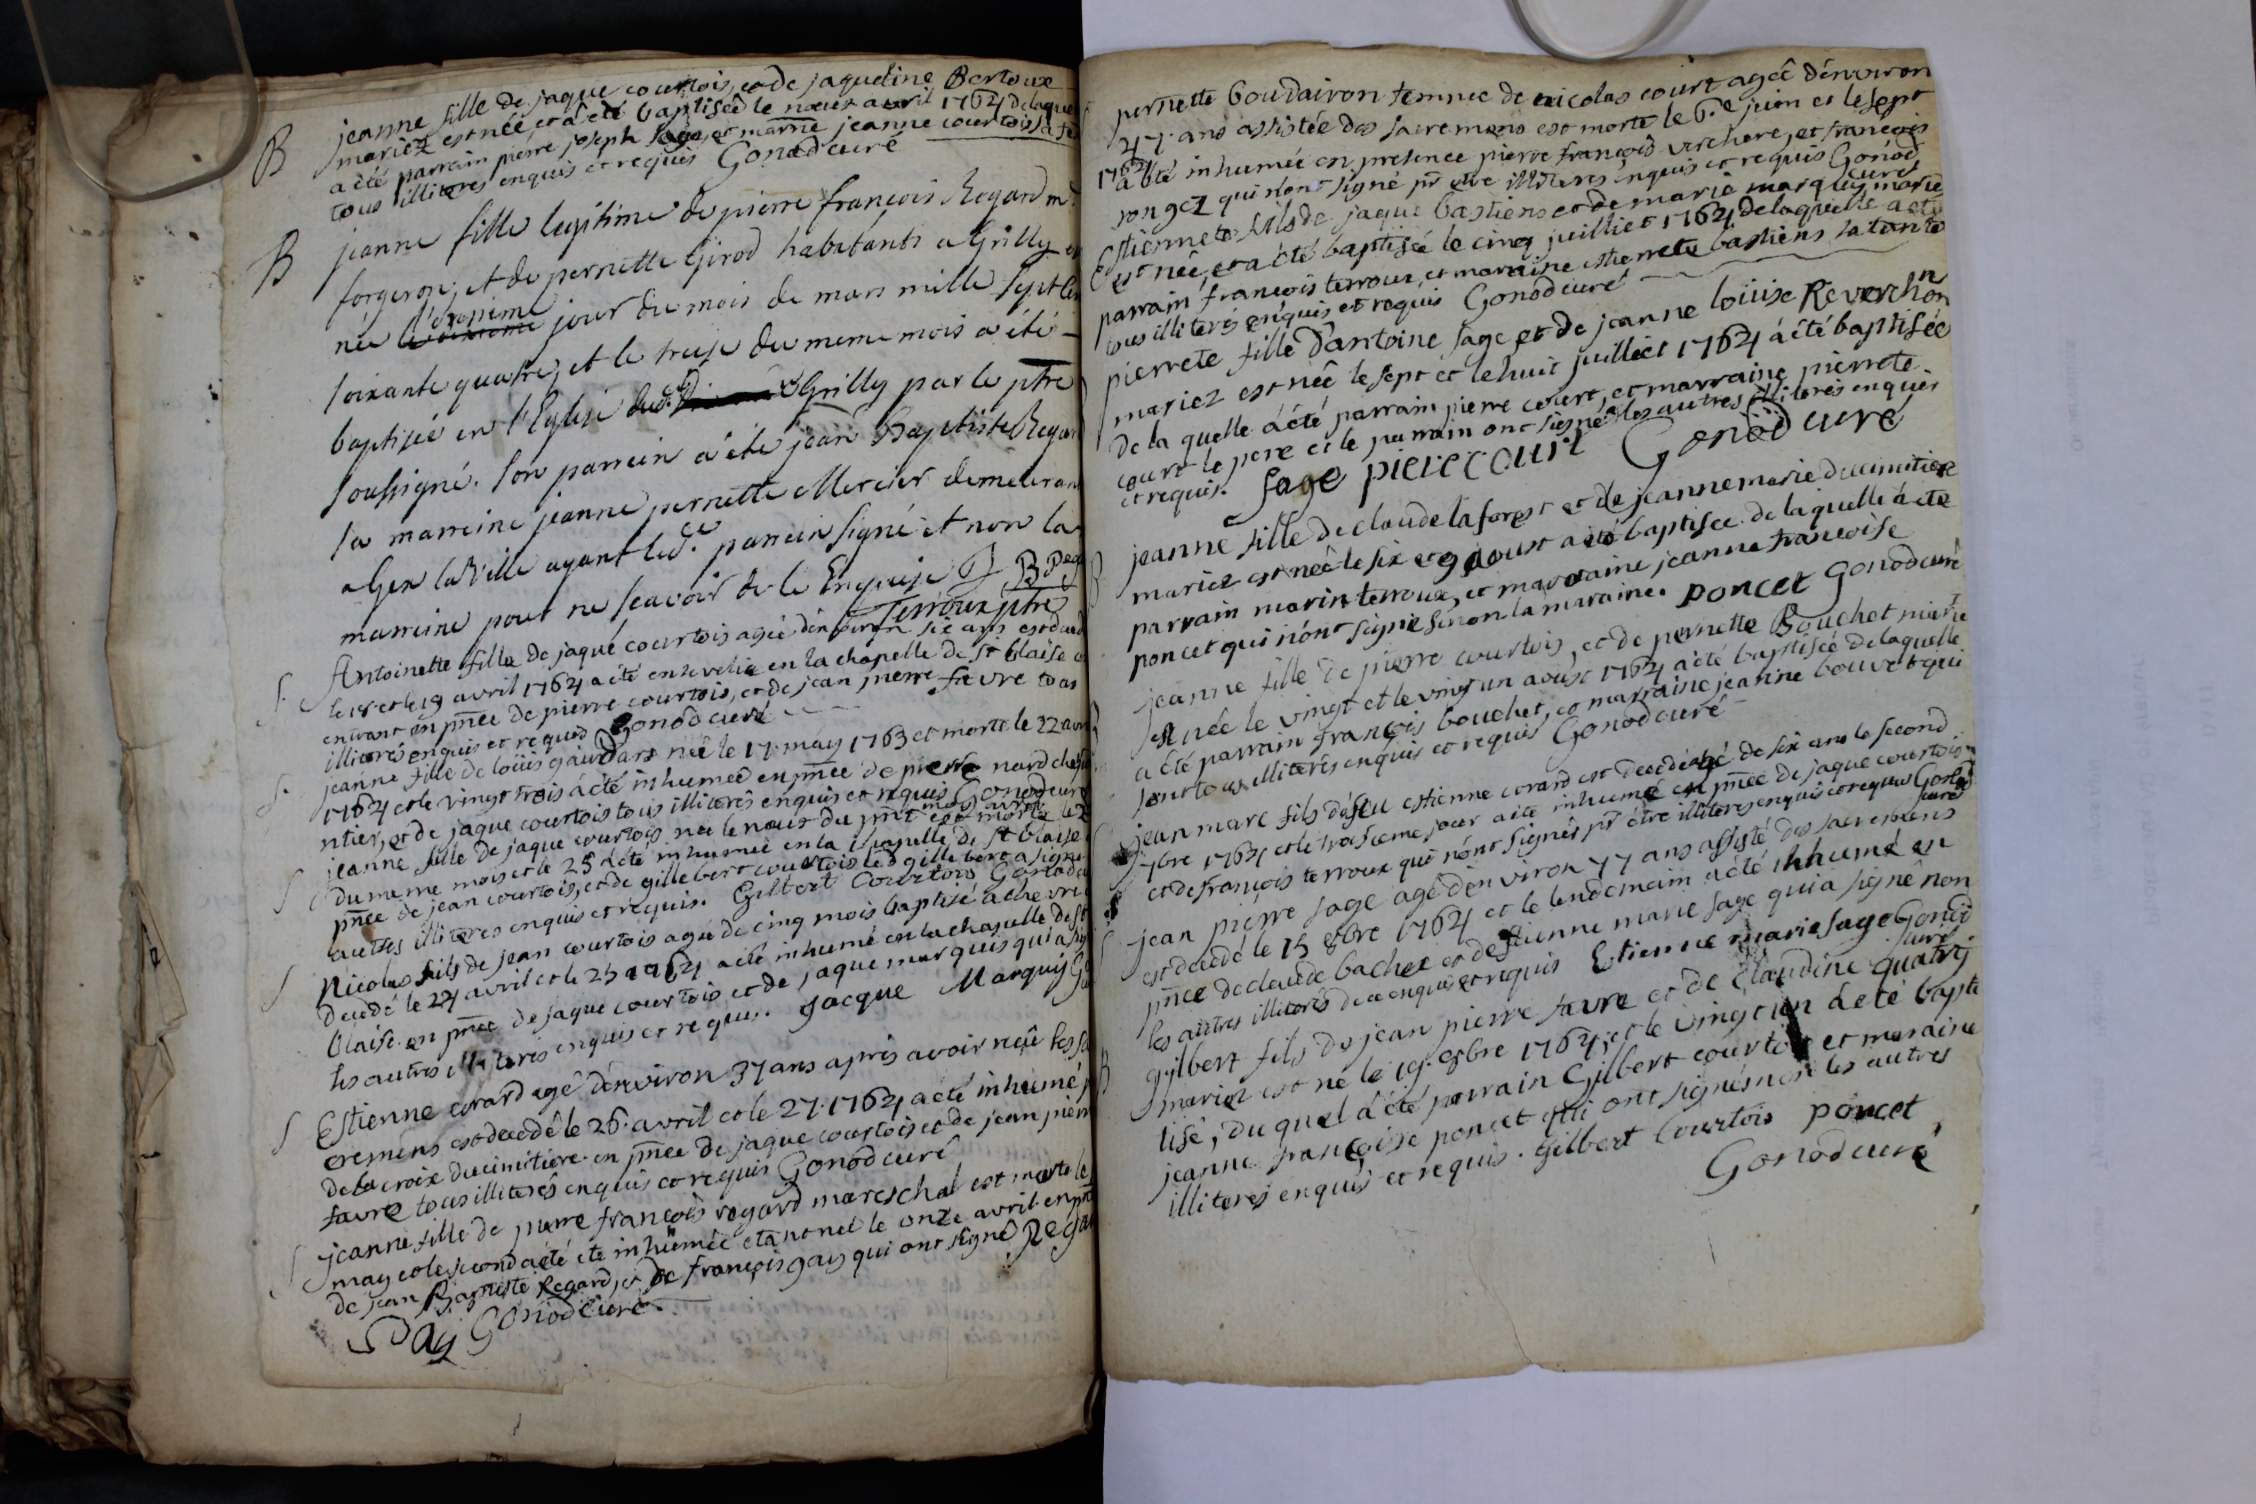 B jeanne fille de jaque courtois, et de jaqueline Bertoux
mariez est née, et a été baptisée le neuf avril 1764 de laque
a été parrain pierre joseph sage, et marrne jeanne courtois sa
tous illiteres enquis et requis Gonod curé
B jeanne fille legitime de pierre françois Regard m
forgeron, et de pernette Girod habitants a Grilly
née l'onzieme jour du mois de mars mille sept
soixante quatre, et le treise du meme mois a été
baptisée en l'Eglise dud. Grilly par le ptre
soussigné. son parrein a été jean Baptiste Regar
sa marreine jeanne pernette Mercier demeuran
a Gex la Ville ayant led. parrein signé et non la
marreine pour ne scavoir de le Enquise
Terroux ptre
S. Antoinette fille de jaque courtois agée d'environ six ans est
le 18 et le 19 avril 1764 a été ensevelie en la chapelle de st blaise
entrant en pnce de pierre courtois, et de jean pierre favre tous
illiterés enquis et requis Gonod curé
S. jeanne fille de loüis gaudard née le 17 may 1763 et morte le 22 avr
1764 et le vingt trois a été inhumée en pnce de pierre nard
ntier, et de jaque courtois tous illiterés enquis et requis Gonod curé
S jeanne fille de jaque courtois née le neuf du pnt mois avril est morte le
du meme mois et le 25 a été inhumée en la chapelle de st blaise
pnce de jean courtois, et de gillebert courtois led gillebert a signé
autres illiteres enquis et requis. Gilbert Courtois Gonod
S Nicolas fils de jean courtois agé de cinq mois baptisé a
decedé le 24 avril et le 25 1764 a été inhumé en la chapelle de st
blaise en pnce de jaque courtois et de jaque marquis qui a
les autres illiterés enquis et requis. Jacque Marquis
S Estienne corard agé d'environ 37 ans après avoir reçû les
cremens est decedé le 26 avril et le 27 1764 a été inhumé
de la croix du cimitiere en pnce de jaque courtois et de jean pierr
favre tous illiterés enquis et requis Gonod curé
S jeanne fille de pierre françois regard mareschal est morte le
may et le second a été inhumée etant née le onze avril en
de jean Baptiste Regard, et de françois gay qui ont signé Regar
Gay Gonod curé
pernette boudairon femme de nicolas court agée d'environ
47 ans assistée des sacremens est morte le 6.e juin et le sept
1764 a été inhumée en presence pierre françois verchere, et françois
rongez qui n'ont signé pr etre illiteres enquis et requis Gonod
curé
Estiennete fils de jaque bastiens et de marie marquis marié
est née, et a été baptisée le cinq juilliet 1764 de laquelle a été
parrain françois terroux, et marraine estiennete bastiens sa tante
tous illiterés enquis et requis Gonod curé
pierrete fille d'antoine sage et de jeanne loüise Reverchon
mariez est née le sept et le huit juilliet 1764 a été baptisée
de la quelle a été parrain pierre court, et marraine pierrete
court le pere et le parrain ont signé les autres illiterés enquis
et requis. Sage piere court Gonod curé
jeanne fille de claude laforest et de jeanne marie ducimitiere
mariez est née le six et 9 aoust a été baptisee de laquelle a été
parrain marin terroux, et marraine jeanne francoise
poncet qui n'ont signé sinon la maraine. poncet Gonod curé
jeanne fille de pierre courtois, et de pernette Bouchet
est née le vingt et le vingt un aoust 1764 a été baptisée de laquelle
a été parrain françois bouchet, et marraine jeanne bouvet qui
sont tous illiterés enquis et requis Gonod curé
S jean marc fils de feu estienne corard est decedé agé de six ans le second
7bre 1764 et le troisieme jour a été inhumé en pnce de jaque courtois
et de françois terroux qui n'ont signés pr être illiteres enquis et requis Gonod
curé
S jean pierre sage agé d'environ 77 ans assisté des sacremens
est decedé le 15 8bre 1764 et le lendemain a été inhumé en
pnce de claude bachet et de etienne marie sage qui a signé non
les autres illiterés de ce enquis et requis Etienne marie sage Gonod
curé
B gilbert fils de jean pierre favre et de Claudine quatry
mariez est né le 19. 8bre 1764, et le vingt un a été bapti
tisé, du quel a été parrain Gilbert courtois et maraine
jeanne françoise poncet qui ont signés non les autres
illiteres enquis et requis. Gilbert Courtois poncet
Gonod curé